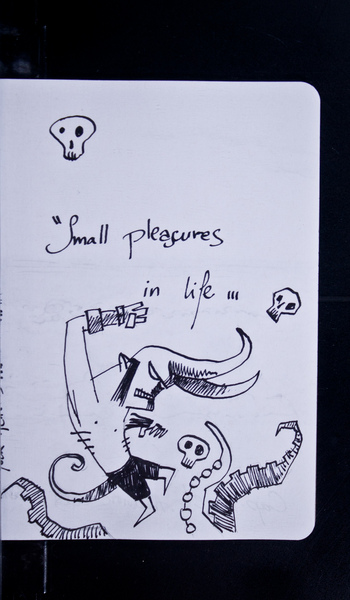 "Small pleasures
in life ...